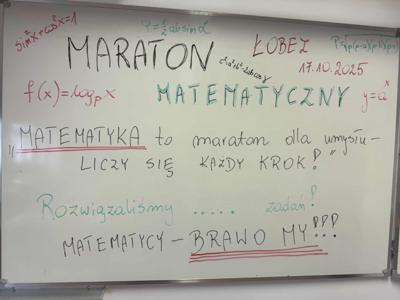 sin²x+cos²x=1
P=½absinα
MARATON
ŁOBEZ
17.10.2025
f(x)=log_p x
MATEMATYCZNY
y=aˣ
„MATEMATYKA to maraton dla umysłu –
LICZY SIĘ KAŻDY KROK!”
Rozwiązaliśmy ..... zadań!
MATEMATYCY – BRAWO MY!!!